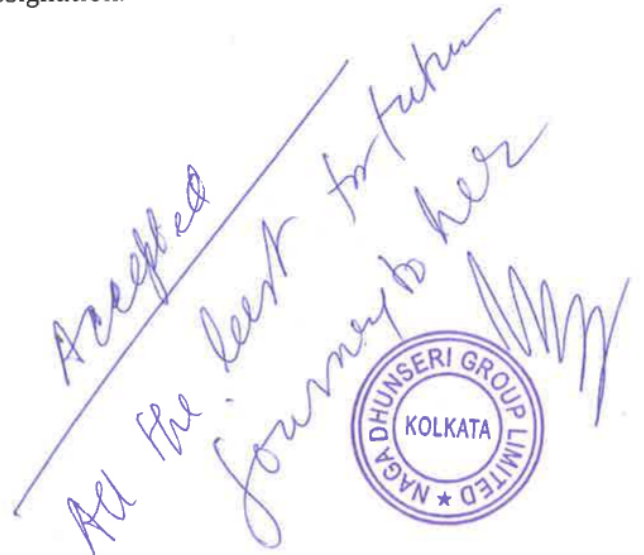 Accepted
All the best for future
journey to her
NAGA DHUNSERI GROUP LIMITED ★
KOLKATA